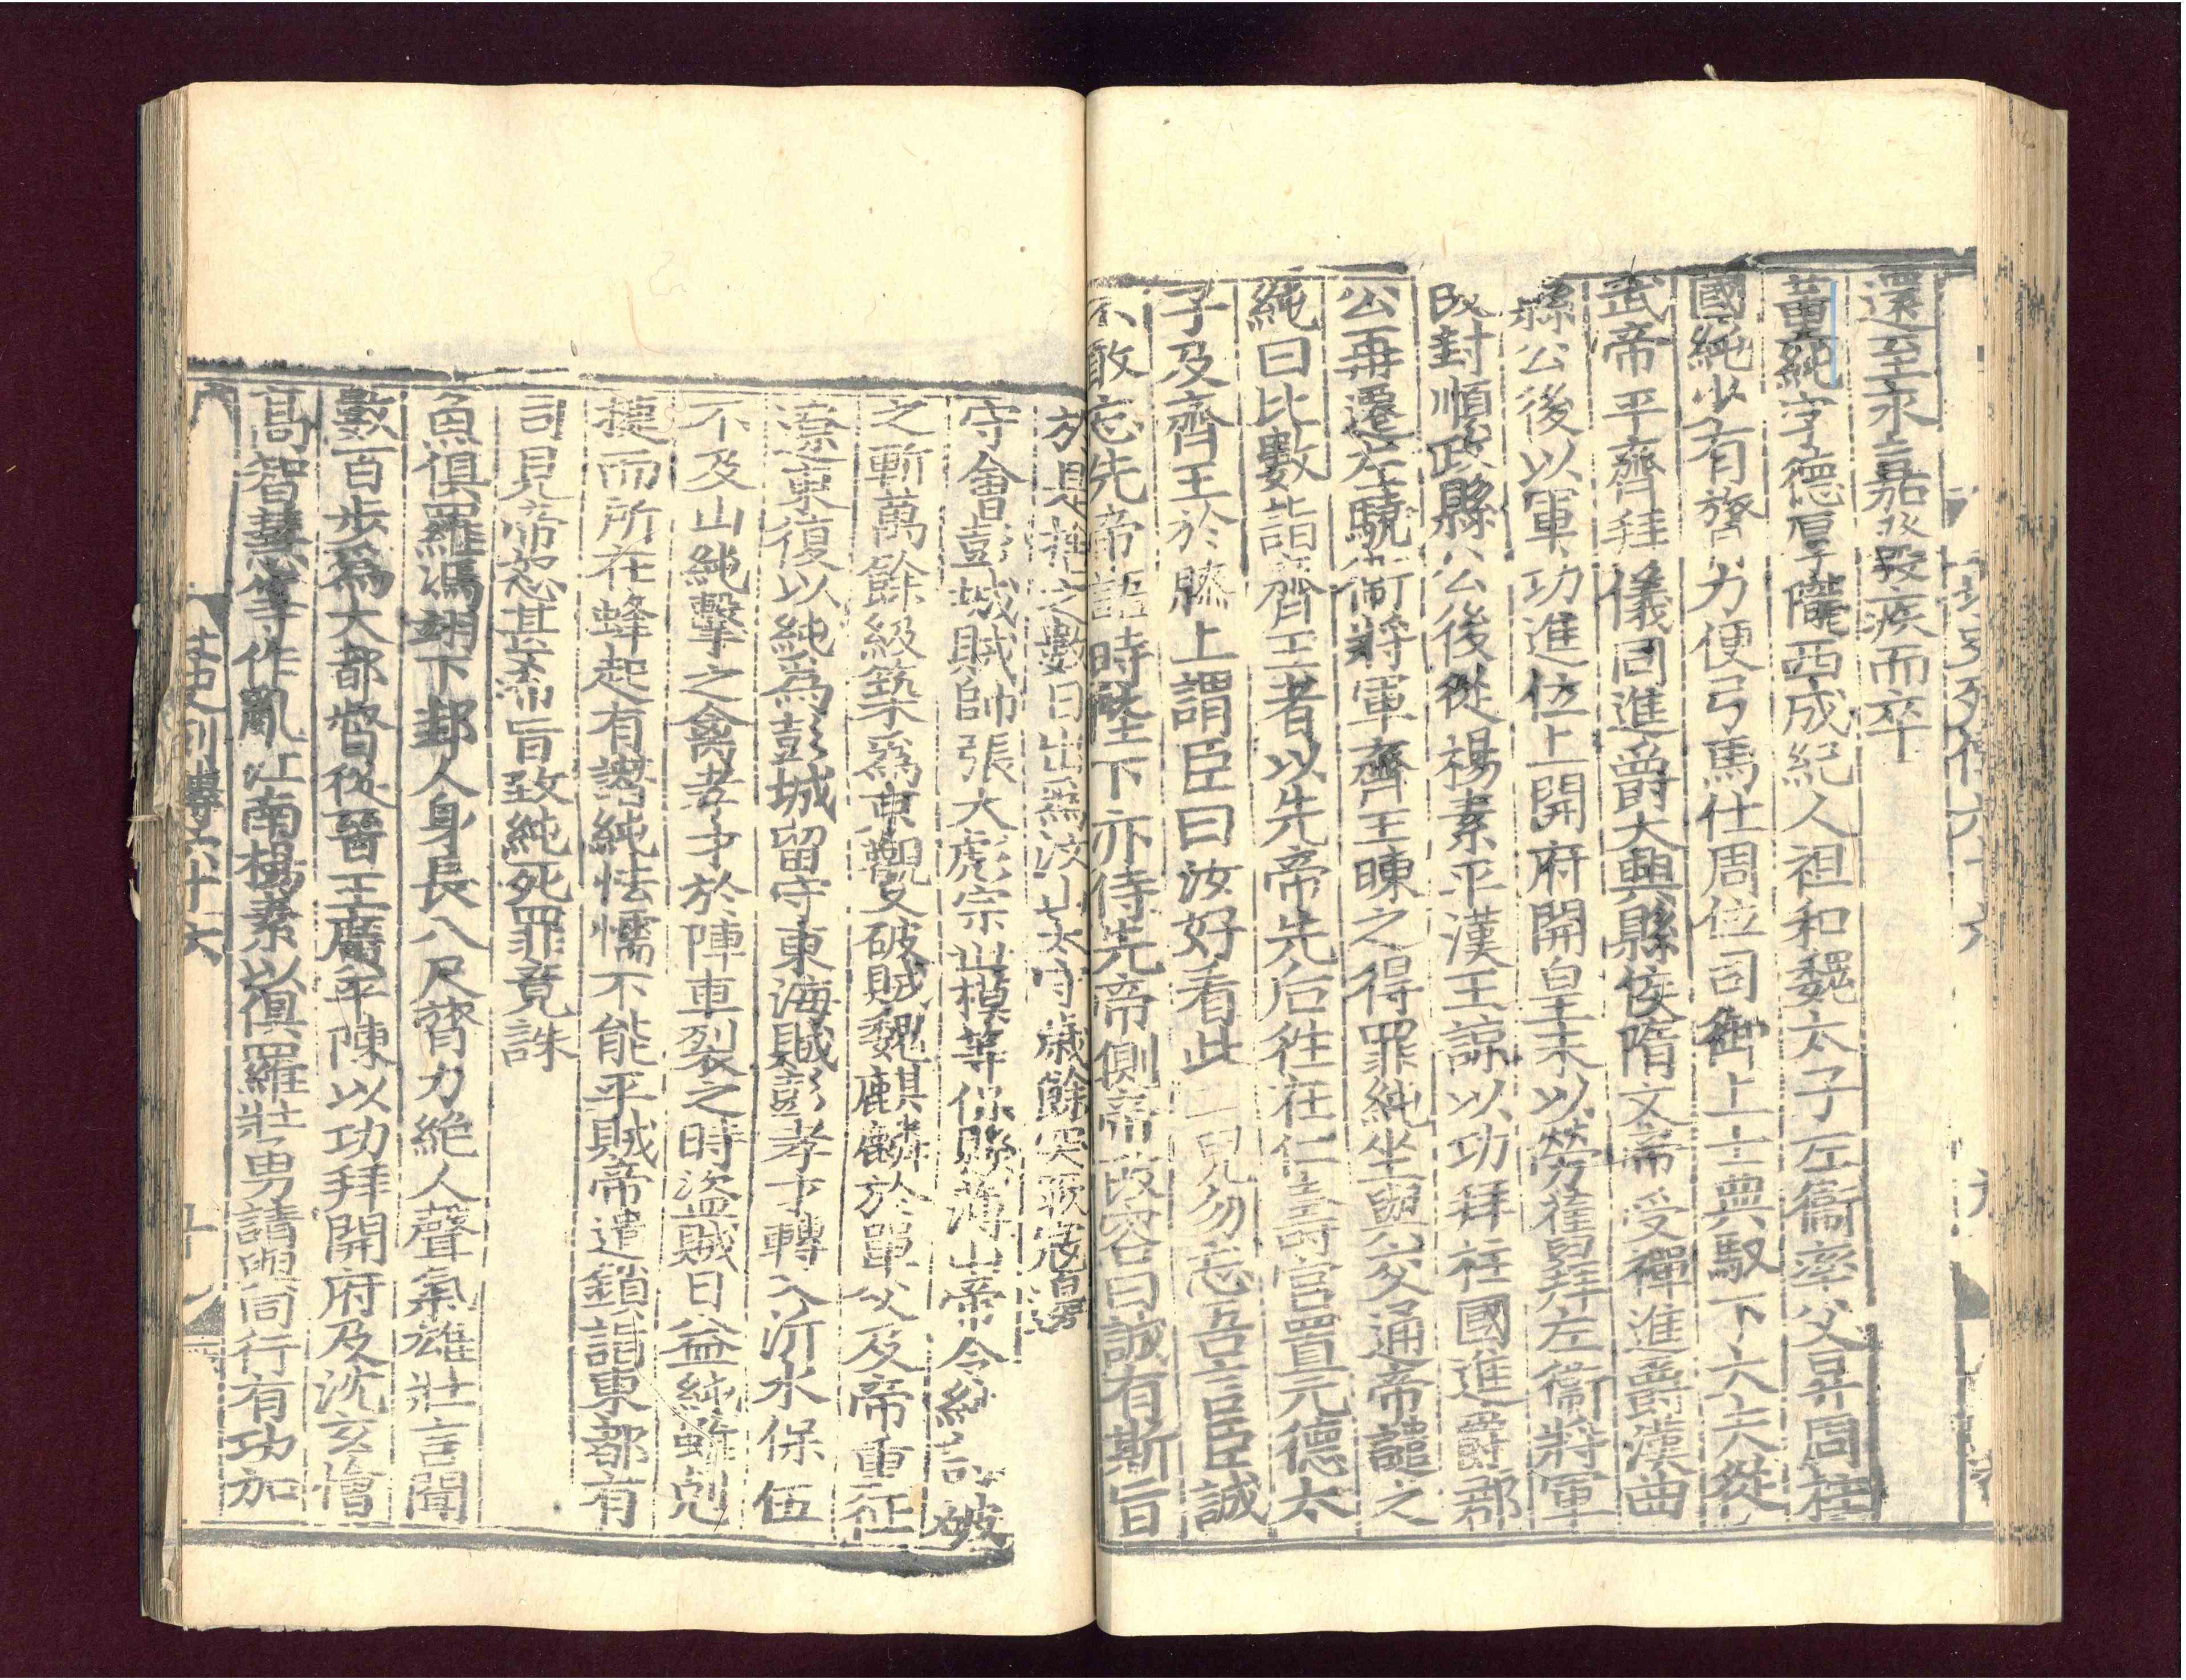 還至永嘉發疾而卒
董純字德厚隴西成紀人祖和魏太子左衞率父昇周柱
國純少有膂力便弓馬仕周位司御上士典馭下大夫從
武帝平齊拜儀同進爵大興縣侯隋文帝受禪進爵漢曲
縣公後以軍功進位上開府開皇末以勞擢拜左衞將軍
改封順政縣公後從楊素平漢王諒以功拜柱國進爵郡
公再遷左驍衞將軍齊王暕之得罪純坐與交通帝譴之
純曰比數詣齊王者以先帝先后往在仁壽宮置元德太
子及齊王於膝上謂臣曰汝好看此二兒勿忘吾言臣誠
不敢忘先帝語時陛下亦侍先帝側帝改容曰誠有斯旨
於是捨之數日出爲汶山太守歲餘突厥寇邊
守會彭城賊帥張大彪宗世模等保縣薄山帝令純討破
之斬萬餘級築爲京觀又破賊魏麒麟於單父及帝重征
遼東復以純爲彭城留守東海賊彭孝才轉入沂水保伍
不及山純擊之禽孝才於陣車裂之時盜賊日益純雖剋
捷而所在蜂起有譖純怯懦不能平賊帝遣鎖詣東都有
司見帝怒甚希旨致純死罪竟誅
魚俱羅馮翊下邽人身長八尺膂力絶人聲氣雄壯言聞
數百步爲大都督從晉王廣平陳以功拜開府及沈玄懀
高智慧等作亂江南楊素以俱羅壯勇請與同行有功加
北史列傳六十六